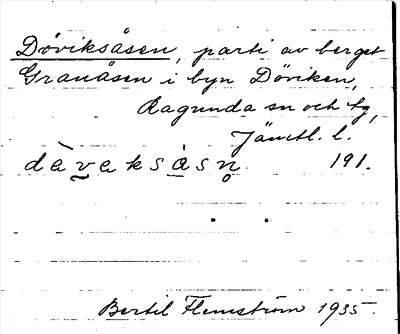 Döviksåsen, parti av berget
Granåsen i byn Döviken,
Ragunda sn och tg,
Jämtl. l.
dàvaksàsn̥ 191.
Bertil Flemström 1935.